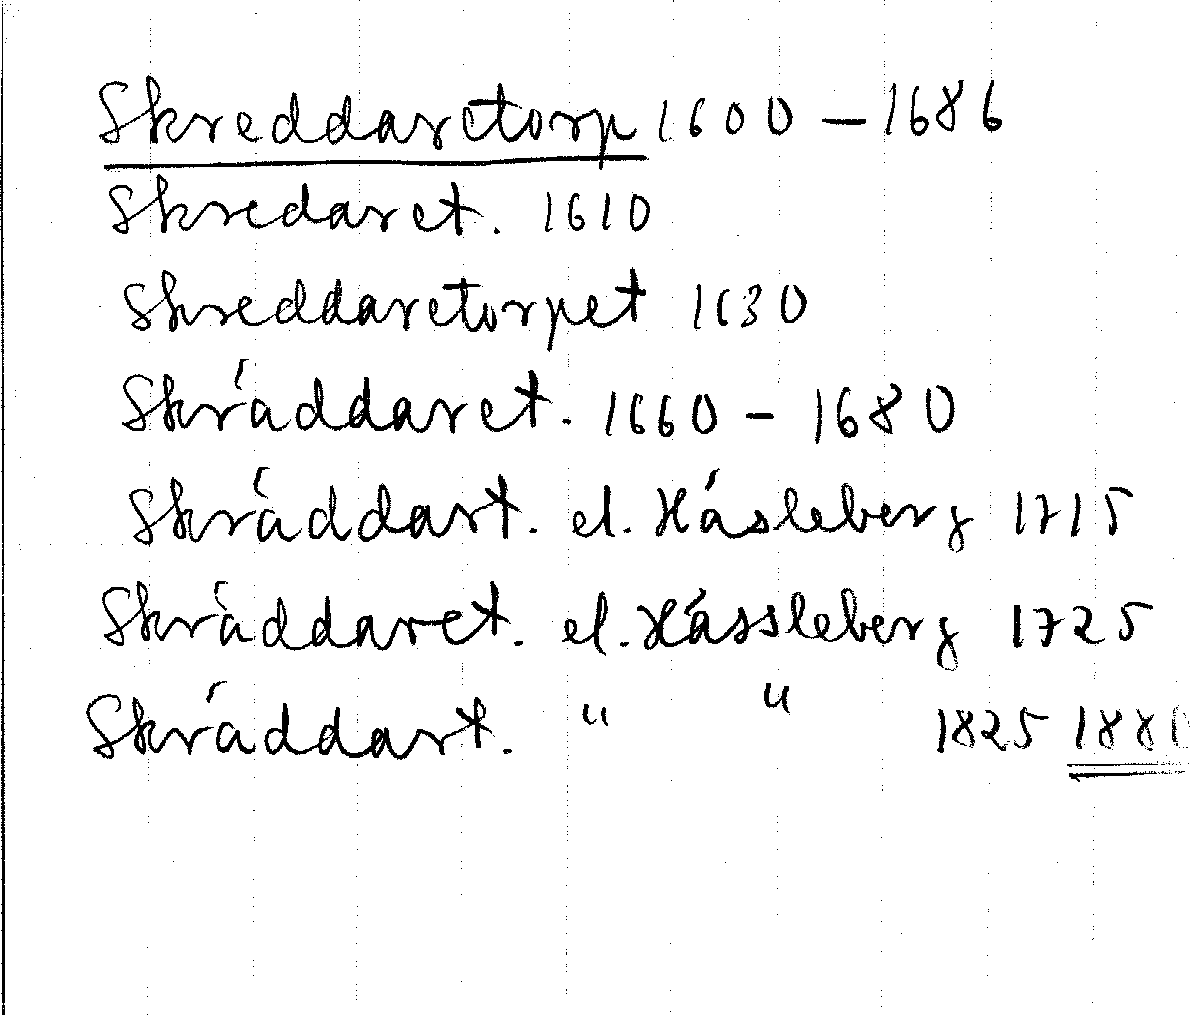 Skreddaretorp 1600 – 1686
Skredaret. 1610
Skreddaretorpet 1630
Skräddaret. 1660 – 1680
Skräddart. el. Häsleberg 1715
Skräddaret. el. Hässleberg 1725
Skräddart. " " 1825 1880